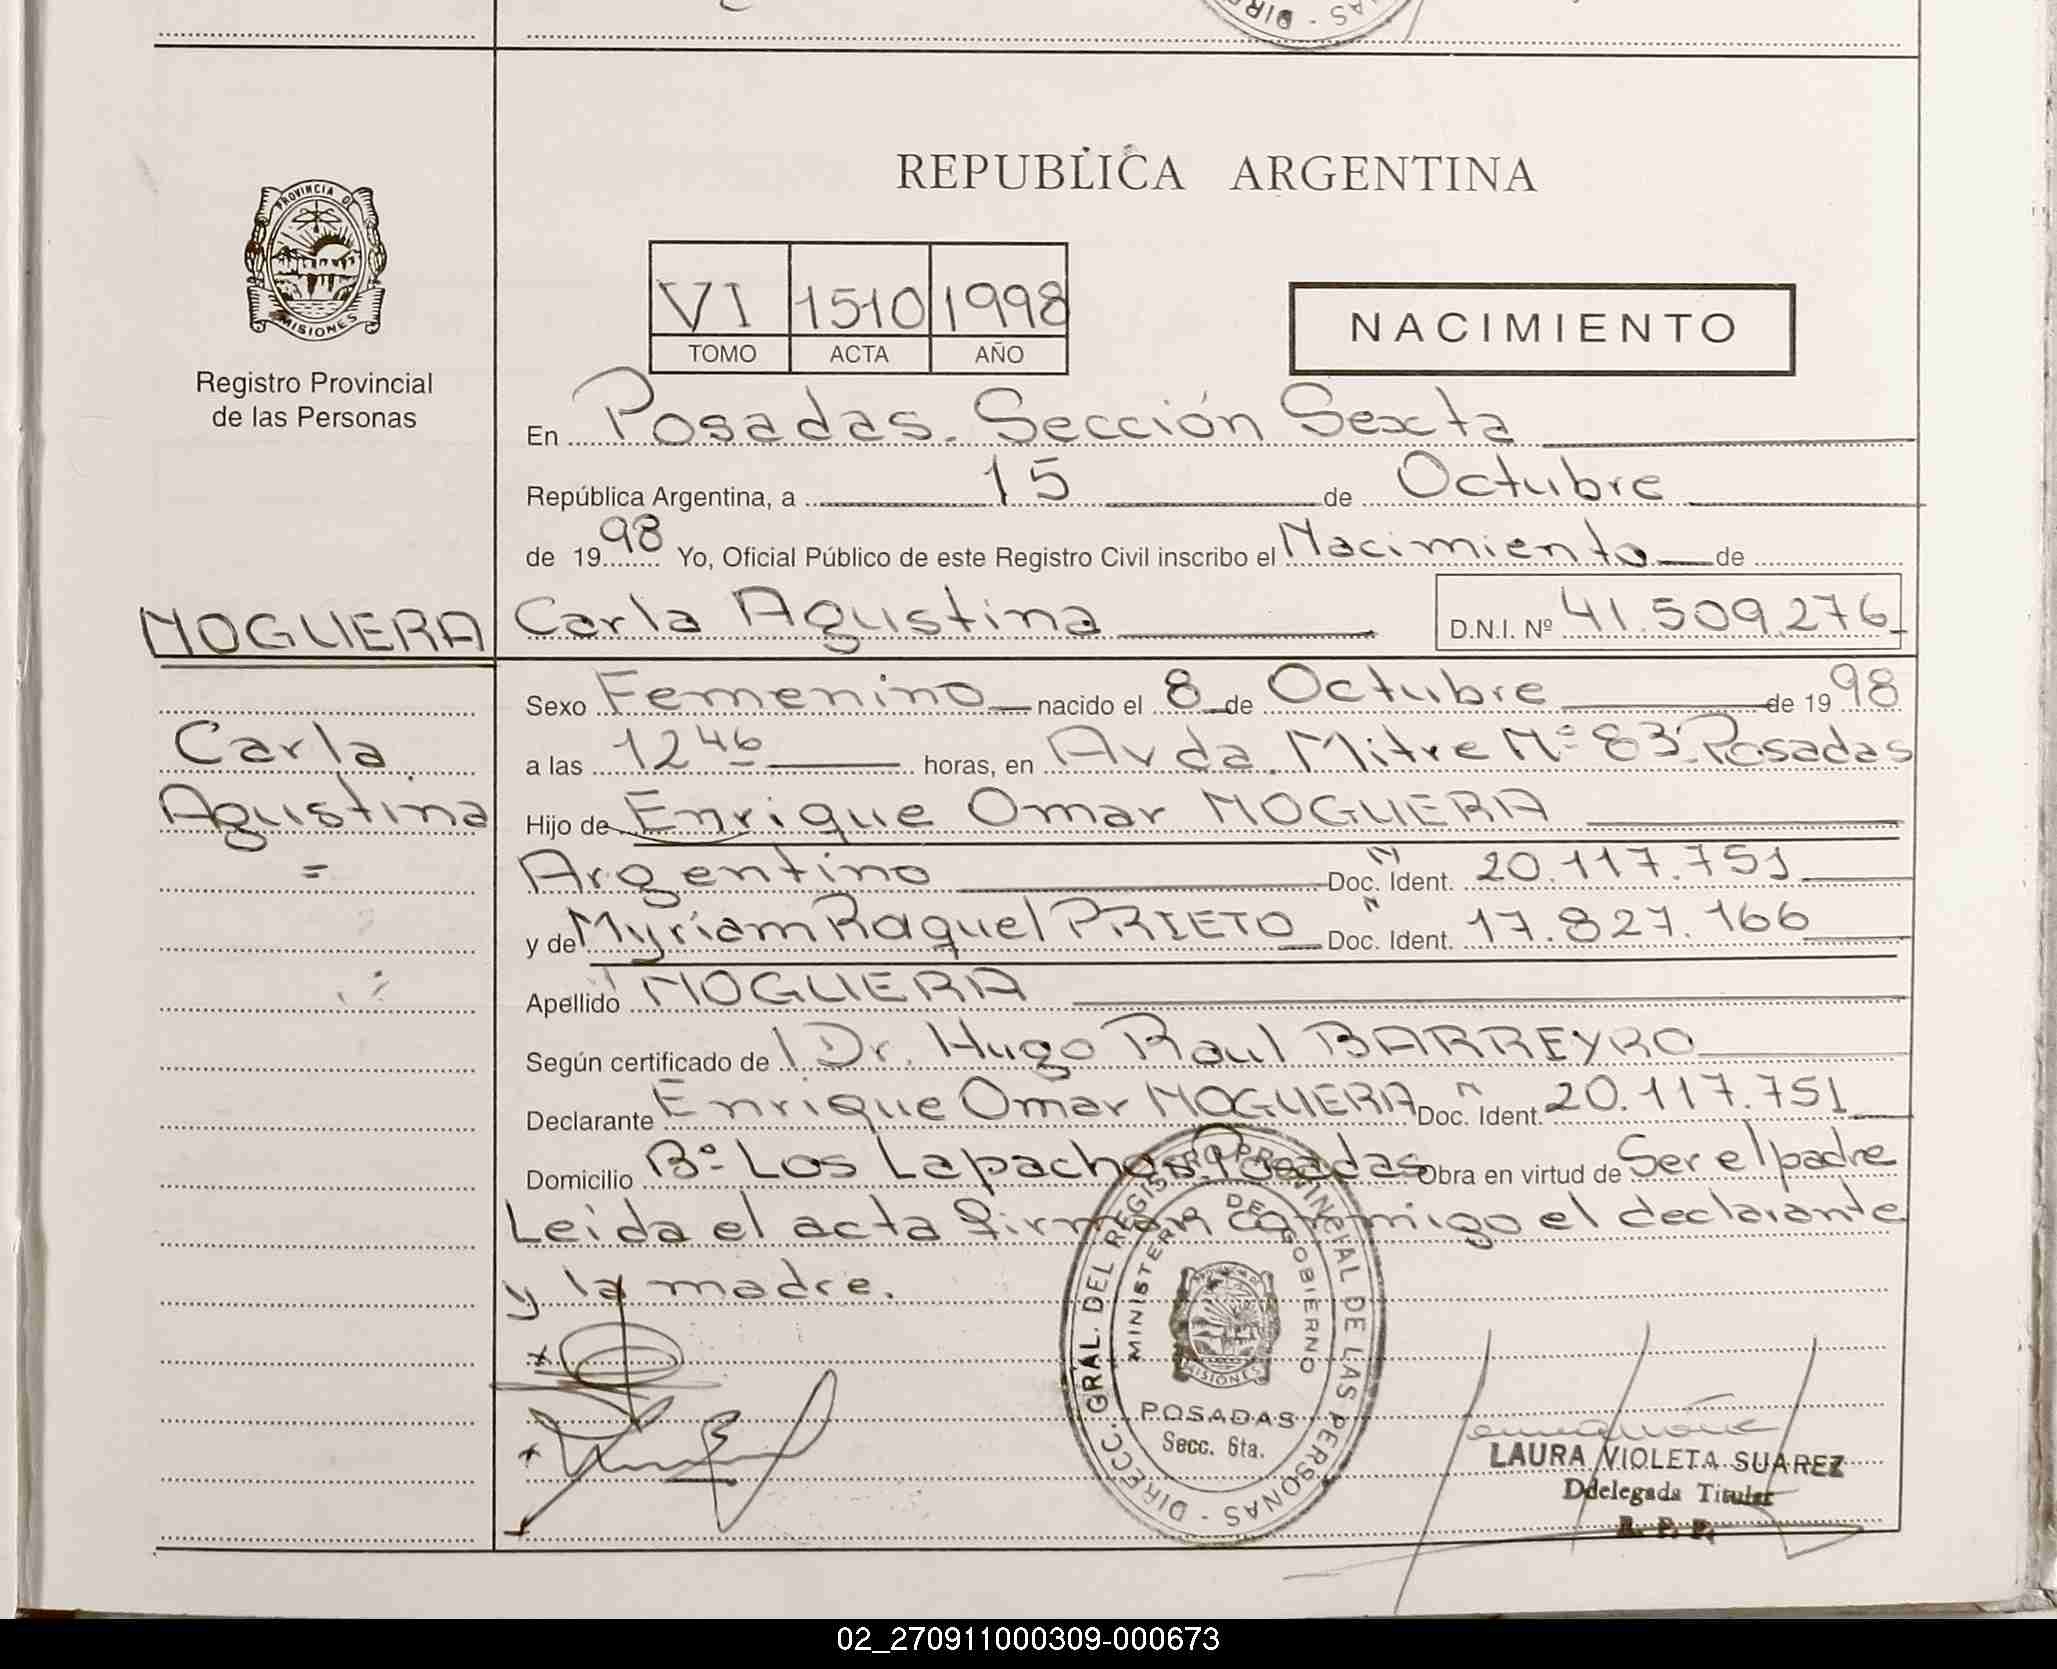 REPUBLICA ARGENTINA
PROVINCIA D
MISIONES
Registro Provincial
de las Personas
VI 1510 1998
TOMO ACTA AÑO
NACIMIENTO
En Posadas. Sección Sexta
República Argentina, a 15 de Octubre
de 1998 Yo, Oficial Público de este Registro Civil inscribo el Nacimiento de
NOGUERA Carla Agustina D.N.I. Nº 41.509.276
Sexo Femenino nacido el 8 de Octubre de 1998
Carla
a las 12 46 horas, en Avda. Mitre Nº 83 Posadas
Agustina
Hijo de Enrique Omar NOGUERA
=
Argentino Doc. N Ident. 20.117.751
y de Myriam Raquel PRIETO Doc. N Ident. 17.827.166
Apellido NOGUERA
Según certificado de l Dr. Hugo Raul BARREYRO
Declarante Enrique Omar NOGUERA Doc. N Ident. 20.117.751
Domicilio Bº Los Lapachos. Posadas Obra en virtud de Ser el padre
Leida el acta firman conmigo el declarante
y la madre.
DIRECC. GRAL. DEL REGISTRO PROVINCIAL DE LAS PERSONAS -
MINISTERIO DE GOBIERNO
MISIONES
POSADAS
Secc. 6ta.
LAURA VIOLETA SUAREZ
Ddelegada Titular
R. P. P.
02_270911000309-000673